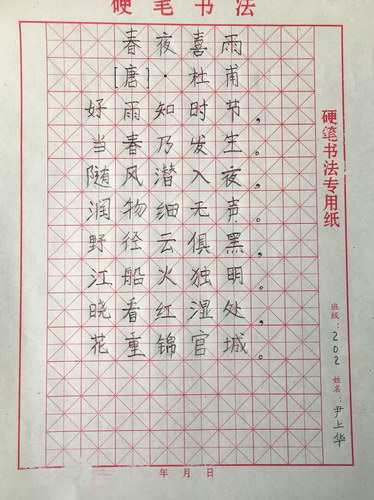 硬笔书法
春夜喜雨
[唐]·杜甫
好雨知时节，
当春乃发生。
随风潜入夜，
润物细无声。
野径云俱黑，
江船火独明。
晓看红湿处，
花重锦官城。
硬笔书法专用纸
班级：202 姓名：尹上华
年月日